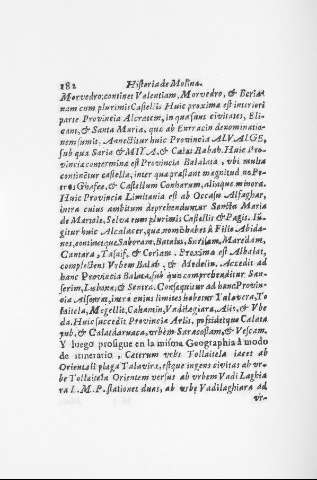 182 Historia de Molina.
Morvedro; continet Valentiam, Morvedro, & Beria-
nam cum plurimis Castellis Huic proxima est interiori
parte Provincia Alcratem, in qua sunt civitates, Eli-
cant, & Santa Maria, que ab Eurracin denominatio-
nem sumit. Annectitur huic Provincia ALVALGE,
sub qua Suria & MITA, & Calat Rabah. Huic Pro-
vincia contermina est Provincia Balalta, ubi multa
continetur castella, inter qua præstant magnitud ne Pe-
tros Ghafec, & Castellum Conharum, aliaque minora.
Huic Provincia Limitania est ab Occasu Alfaghar,
intra cuius ambitum deprehenduntur Sancta Maria
de Martole, Selca cum plurimis Castellis & Pagis. Iũ-
gitur huic Alcalacer, qua nomẽ habes à Filio Abida-
nes, continetque Iaboram, Batalus, Saritam, Maredam,
Cantara, Tasaif, & Coriam. Proxima est Albalat,
complectens Vrbem Balat, & Medelin. Accedit ad
hanc Provincia Balata, sub qua comprehenditur San-
serim, Lisbona; & Sentra. Consequitur ad hanc Provin-
cia Alserrat, intra cuius limites habetur Talavera, To
laitela, Megellit, Cabamin, Vadilagiara, Alis, & Vbe
da. Huic succedit Provincia Arlis, possidetque Calata
yub, & Calatdaruaca, urbem Saracostam, & Vescam,
Y luego prosigue en la misma Geographia à modo
de itinerario. Ceterum vebs Tollaitela iacet ab
Orientali plaga Talavira, estque ingens civitas ab vr-
be Tollaitela Orientem versus ab vrbem Vadi Laghia
ra L. M. P. stationes duas, ab vrbe Vadilaghiara ad
vr-